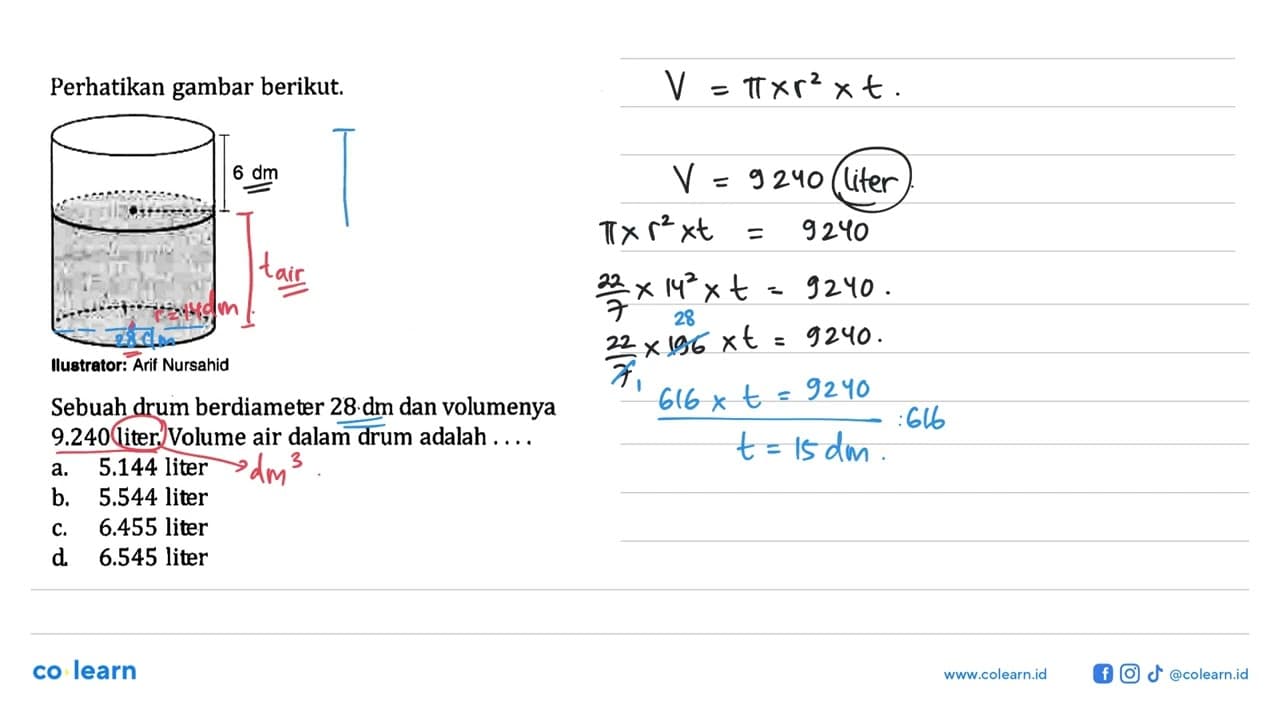 Perhatikan gambar berikut.
6 dm
t air
r = 14 dm
28 dm
Ilustrator: Arif Nursahid
Sebuah drum berdiameter 28 dm dan volumenya
9.240 liter. Volume air dalam drum adalah . . . .
dm³
a. 5.144 liter
b. 5.544 liter
c. 6.455 liter
d. 6.545 liter
V = π x r² x t.
V = 9240 liter.
π x r² x t = 9240
22/7 x 14² x t = 9240.
28
22/7 x 196 x t = 9240.
1
616 x t = 9240
: 616
t = 15 dm.
co learn
www.colearn.id
@colearn.id